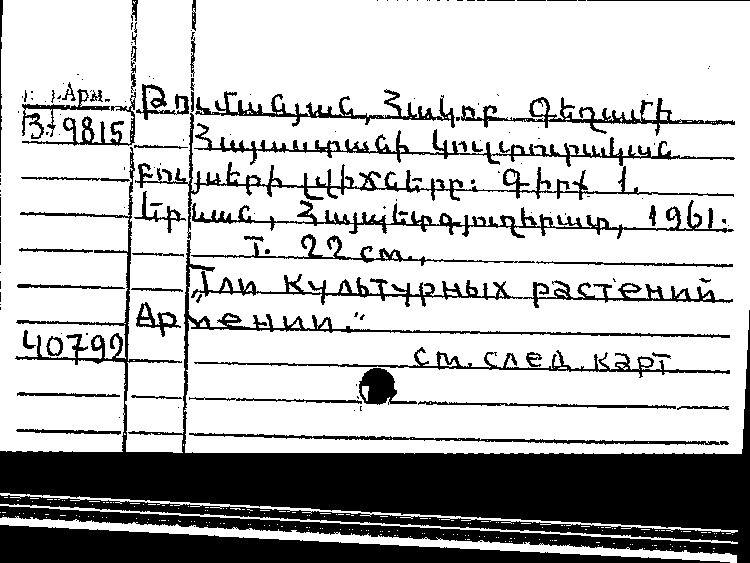 Арм.
Թումանյան, Հակոբ Գեղամի
3-9815
Հայաստանի կուլտուրական
բույսերի լվիճները: Գիրք 1.
Երևան, Հայպետգյուղհրատ, 1961:
Т. 22 см.,
„Тли культурных растений
Армении.“
40792
см. след. карт